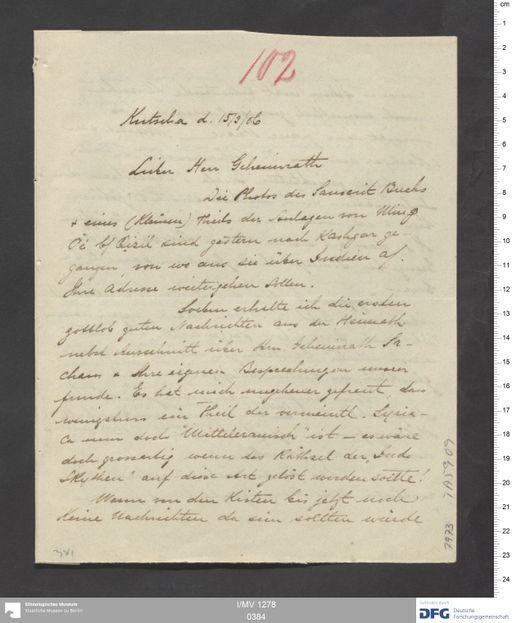 102
Kutscha d. 15/3/06
Lieber Herr Geheimrath
Die Photos des Sanscrit Buchs
+ eines (kleinen) Theils der Anlagen von Ming
Öi b/ Qizil sind gestern nach Kashgar ge-
gangen, von wo aus sie über Indien a/.
Ihre Adresse weitergehen sollen.
Soeben erhalte ich die ersten
gottlob guten Nachrichten aus der Heimath
nebst Ausschnitt über Hrn Geheimrath Sa-
chaus + Ihre eigenen Besprechungen unserer
funde. Es hat mich ungeheuer gefreut, dass
wenigstens ein Theil des vermeintl. Syria-
ca nun doch "Mitteleranisch" ist – es wäre
doch grossartig wenn das Räthsel der "Indo
Skythen" auf diese Art gelöst werden sollte!
Wenn von den Kisten bis jetzt noch
keine Nachrichten da sein sollten würde
7973
TA 5909
Ethnologisches Museum
Staatliche Museen zu Berlin
I/MV 1278
0384
gefördert durch
DFG
Deutsche
Forschungsgemeinschaft
cm
1
2
3
4
5
6
7
8
9
10
11
12
13
14
15
16
17
18
19
20
21
22
23
24